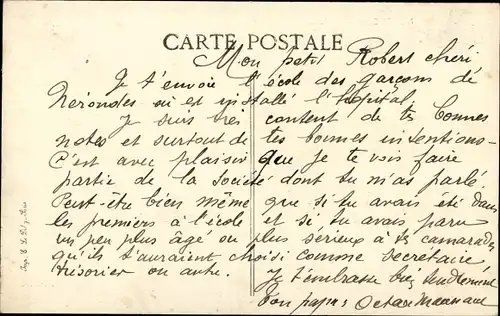 CARTE POSTALE
Mon petit Robert chéri
Je t'envoie l'école des garçons de
Nérondes où est installé l'hopital.
Je suis très content de tes bonnes
notes et surtout de tes bonnes intentions.
C'est avec plaisir que je te vois faire
partie de la société dont tu m'as parlé
Peut-être bien même que si tu avais été dans
les premiers à l'école et si tu avais paru
un peu plus âgé ou plus sérieux à tes camarades
qu'ils t'auraient choisi comme secrétaire
trésorier ou autre. Je t'embrasse bien tendrement
Ton papa Octave